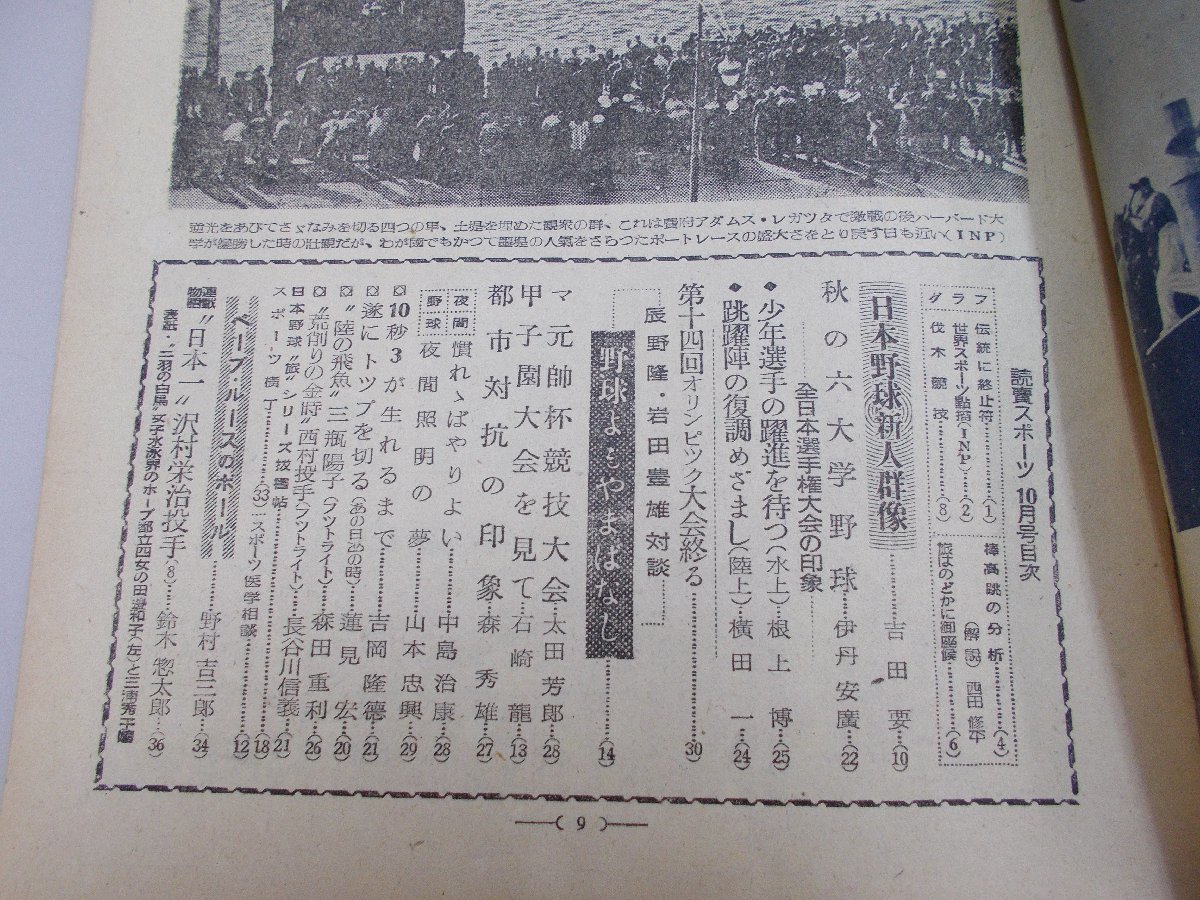 逆光をあびてさゞなみを切る四つの甲、土堤を埋めた観衆の群、これは費府アダムス・レガツタで激戦の後ハーバード大
学が優勝した時の壮観だが、わが國でもかつて墨堤の人氣をさらつたボートレースの盛大さをとり戻す日も近い(INP)
読賣スポーツ 10月号目次
グラフ
伝統に終止符……(1)
世界スポーツ點描(INP)……(2)
伐木競技……(8)
棒高跳の分析……(4)
(解説) 西田修平
旅はのどかに御座候……(6)
日本野球新人群像……吉田要…(10)
秋の六大学野球…伊丹安廣…(22)
全日本選手権大会の印象
◆少年選手の躍進を待つ(水上)…根上博…(25)
◆跳躍陣の復調めざまし(陸上)…横田一…(24)
第十四回オリンピック大会終る……30
辰野隆・岩田豊雄対談
野球よもやまばなし……(14)
マ元帥杯競技大会…太田芳郎…(28)
甲子園大会を見て…石崎龍…(13)
都市対抗の印象…森秀雄…(27)
夜間野球
慣れゝばやりよい……中島治康…(28)
夜間照明の夢……山本忠興…(29)
10秒3が生れるまで……吉岡隆徳…(21)
遂にトツプを切る(あの日あの時)…蓮見宏…(20)
“陸の飛魚”三瓶陽子(フツトライト)…森田重利…(26)
“荒削りの金時”西村投手(フツトライト)…長谷川信義…(21)
日本野球“旅”シリーズ抜書帖……(18)
スポーツ横丁……(33)…スポーツ医学相談……(12)
ベーブ・ルースのボール……野村吉三郎…(34)
連載物語
“日本一”沢村栄治投手(8)……鈴木惣太郎…(36)
表紙・“二羽の白鳥”女子水泳界のホープ都立四女の田邊和子(左)と三浦秀子嬢
―( 9 )―